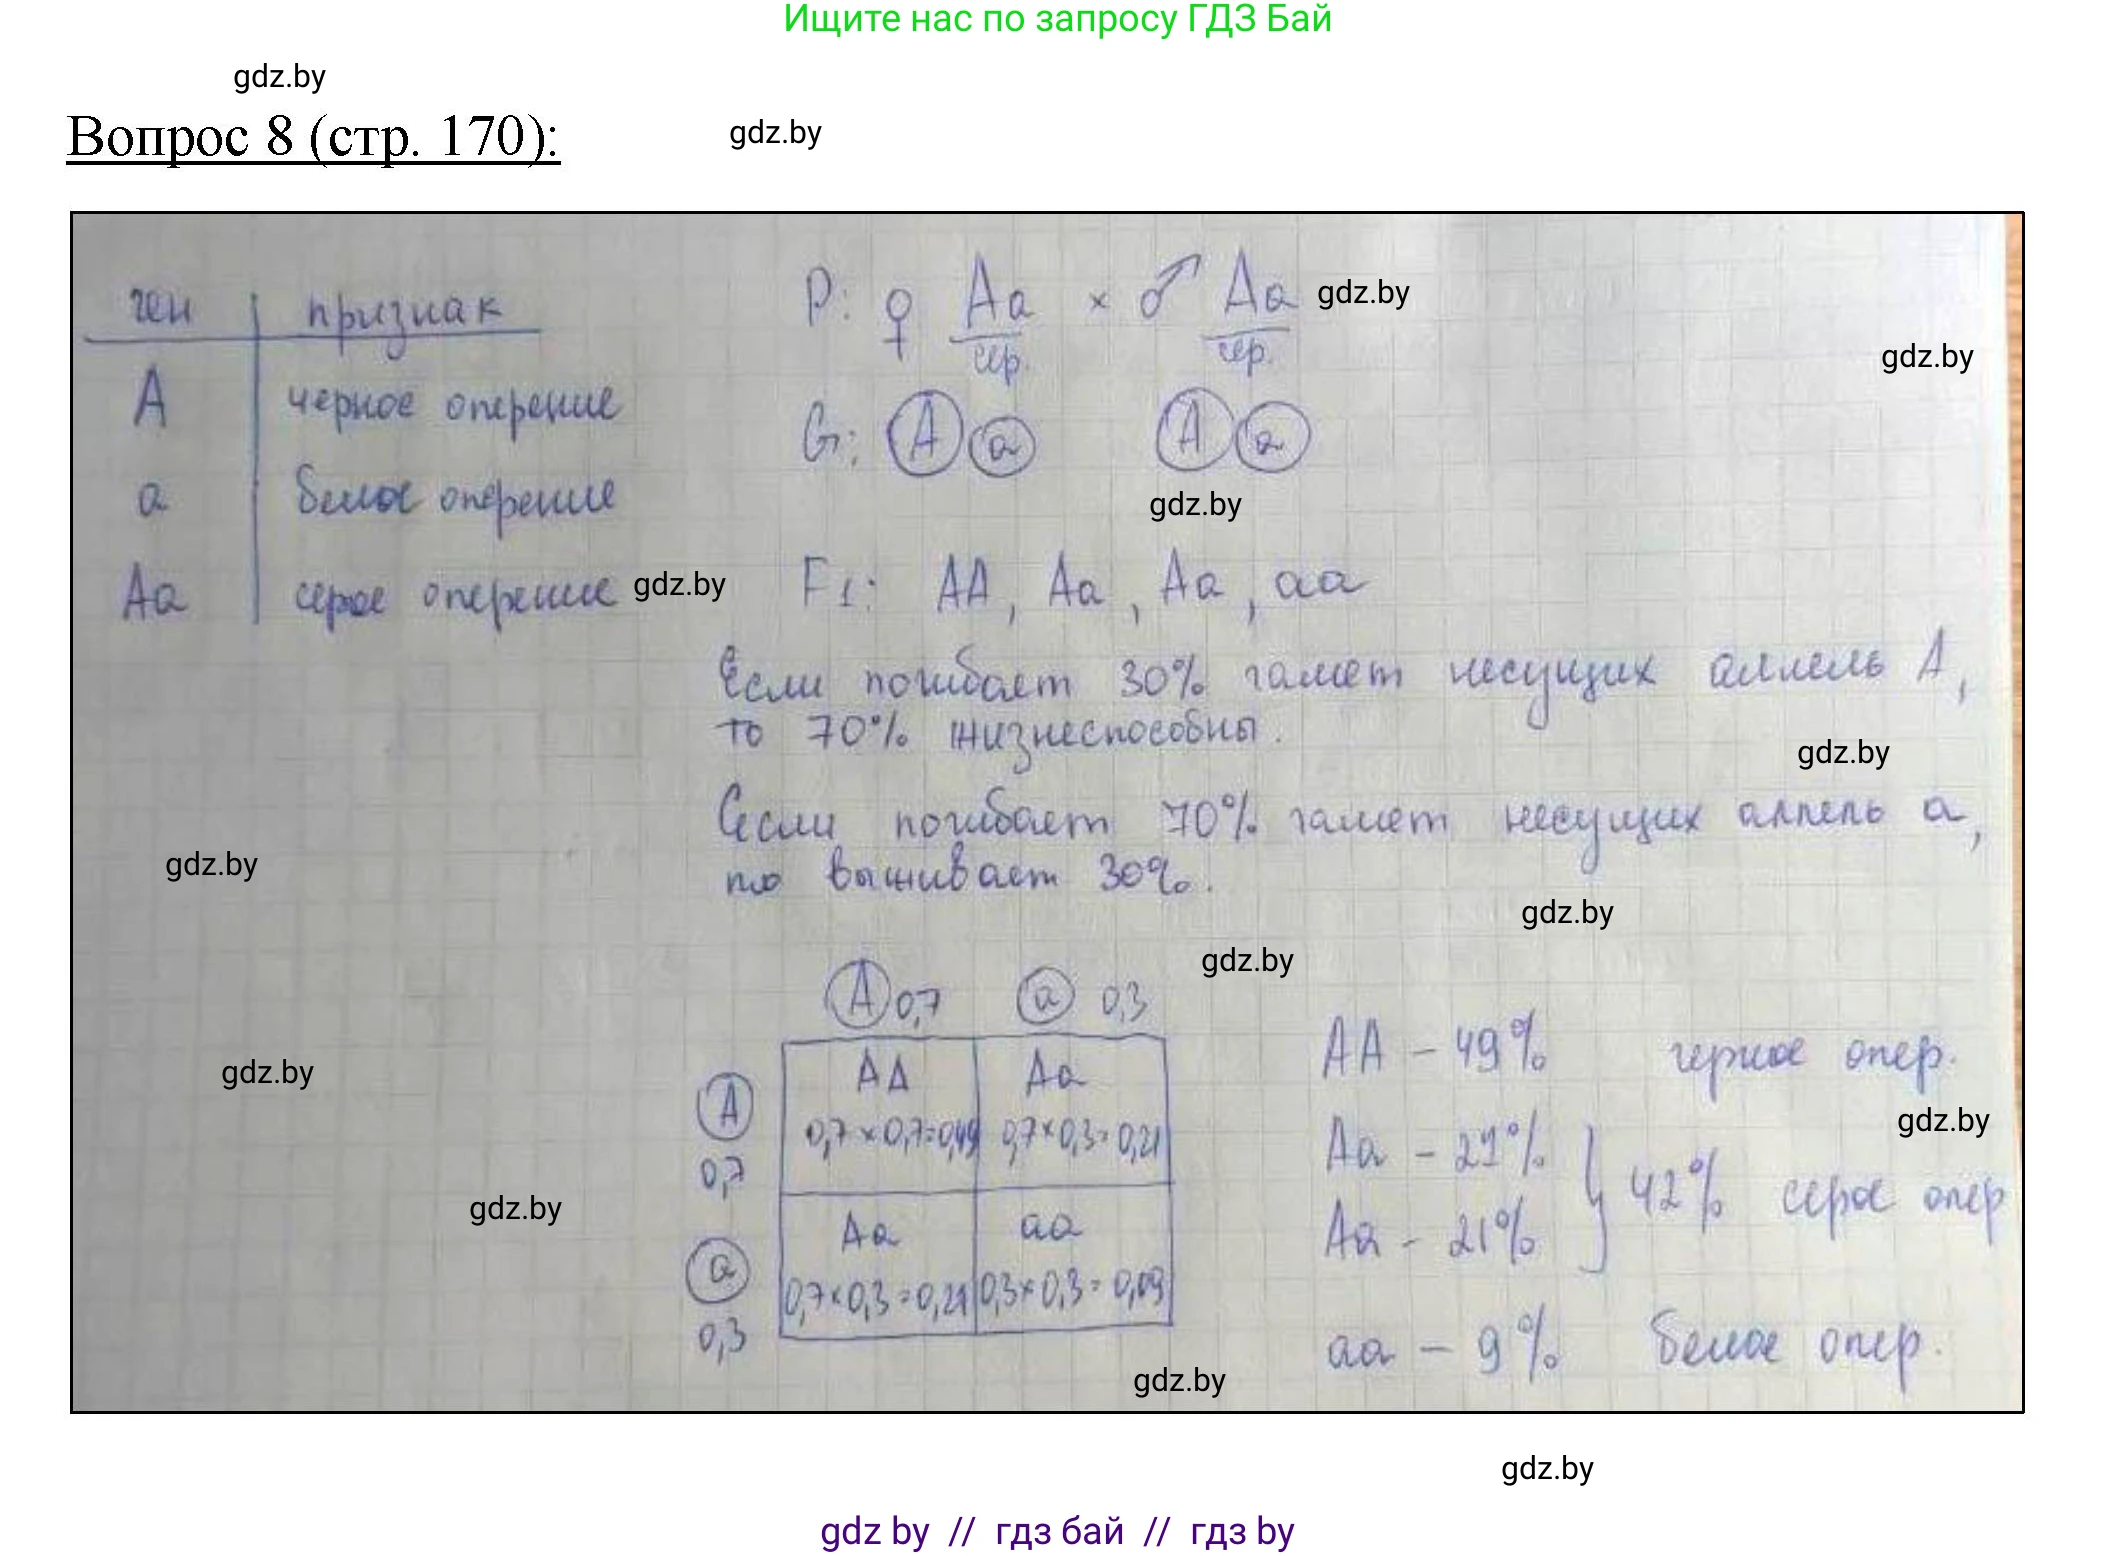 Ищите нас по запросу ГДЗ Бай
gdz.by
Вопрос 8 (стр. 170):
gdz.by
ген признак
A черное оперение
a белое оперение
Aa серое оперение
gdz.by
P: ♀ Aa × ♂ Aa
gdz.by
сер. сер.
gdz.by
G: A a A a
gdz.by
F1: AA, Aa, Aa, aa
Если погибает 30% гамет несущих аллель A,
то 70% жизнеспособны.
gdz.by
Если погибает 70% гамет несущих аллель a,
то выживает 30%.
gdz.by
gdz.by
gdz.by
A 0,7 a 0,3
A 0,7
AA 0,7 × 0,7 = 0,49
Aa 0,7 × 0,3 = 0,21
a 0,3
Aa 0,7 × 0,3 = 0,21
aa 0,3 × 0,3 = 0,09
gdz.by
gdz.by
AA – 49% черное опер.
gdz.by
Aa – 21%
Aa – 21%
} 42% серое опер
aa – 9% белое опер.
gdz.by
gdz.by
gdz by // гдз бай // гдз by